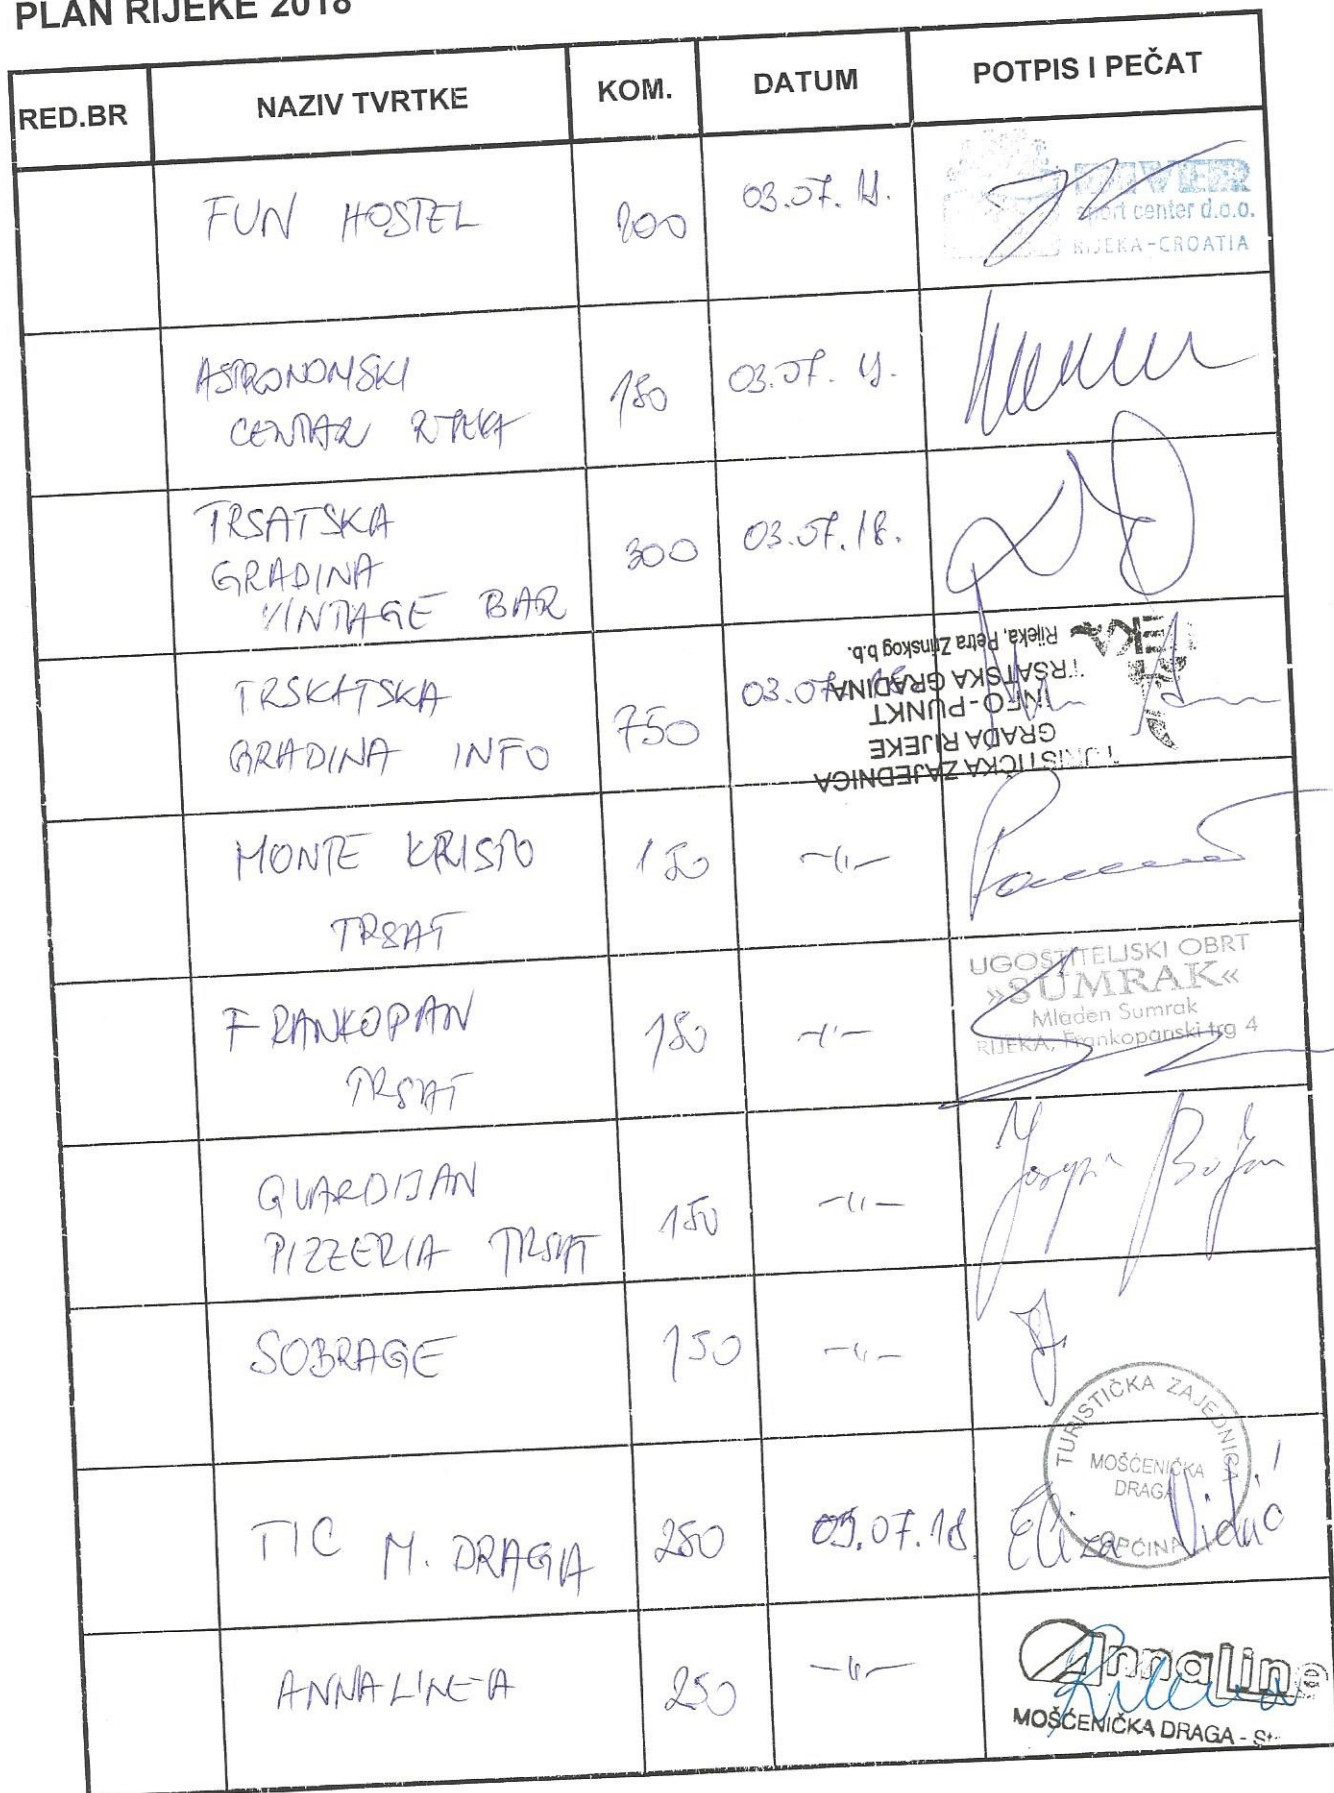 PLAN RIJEKE 2018
RED.BR NAZIV TVRTKE KOM. DATUM POTPIS I PEČAT
FUN HOSTEL 200 03.07.
sport center d.o.o.
RIJEKA-CROATIA
ASTRONOMSKI
CENTAR RIJEKA 150 03.07.
TRSATSKA
GRADINA
VINTAGE BAR 300 03.07.18.
TRSKATSKA
GRADINA INFO 750 03.07.18
TURISTIČKA ZAJEDNICA
GRADA RIJEKE
INFO-PUNKT
TRSATSKA GRADINA
Rijeka, Petra Zrinskog b.b.
MONTE KRISTO
TRSAT 150 -11-
FRANKOPAN
TRSAT 150 -11-
UGOSTITELJSKI OBRT
»SUMRAK«
Mladen Sumrak
RIJEKA, Frankopanski trg 4
GVARDIJAN
PIZZERIA TRSAT 150 -11-
SOBRAGE 150 -11-
TIC M. DRAGA 250 05.07.18
TURISTIČKA ZAJEDNICA
MOŠĆENIČKA
DRAGA
OPĆINA
Eliza
ANNALINE-A 250 -11-
AnnaLine
MOŠĆENIČKA DRAGA -